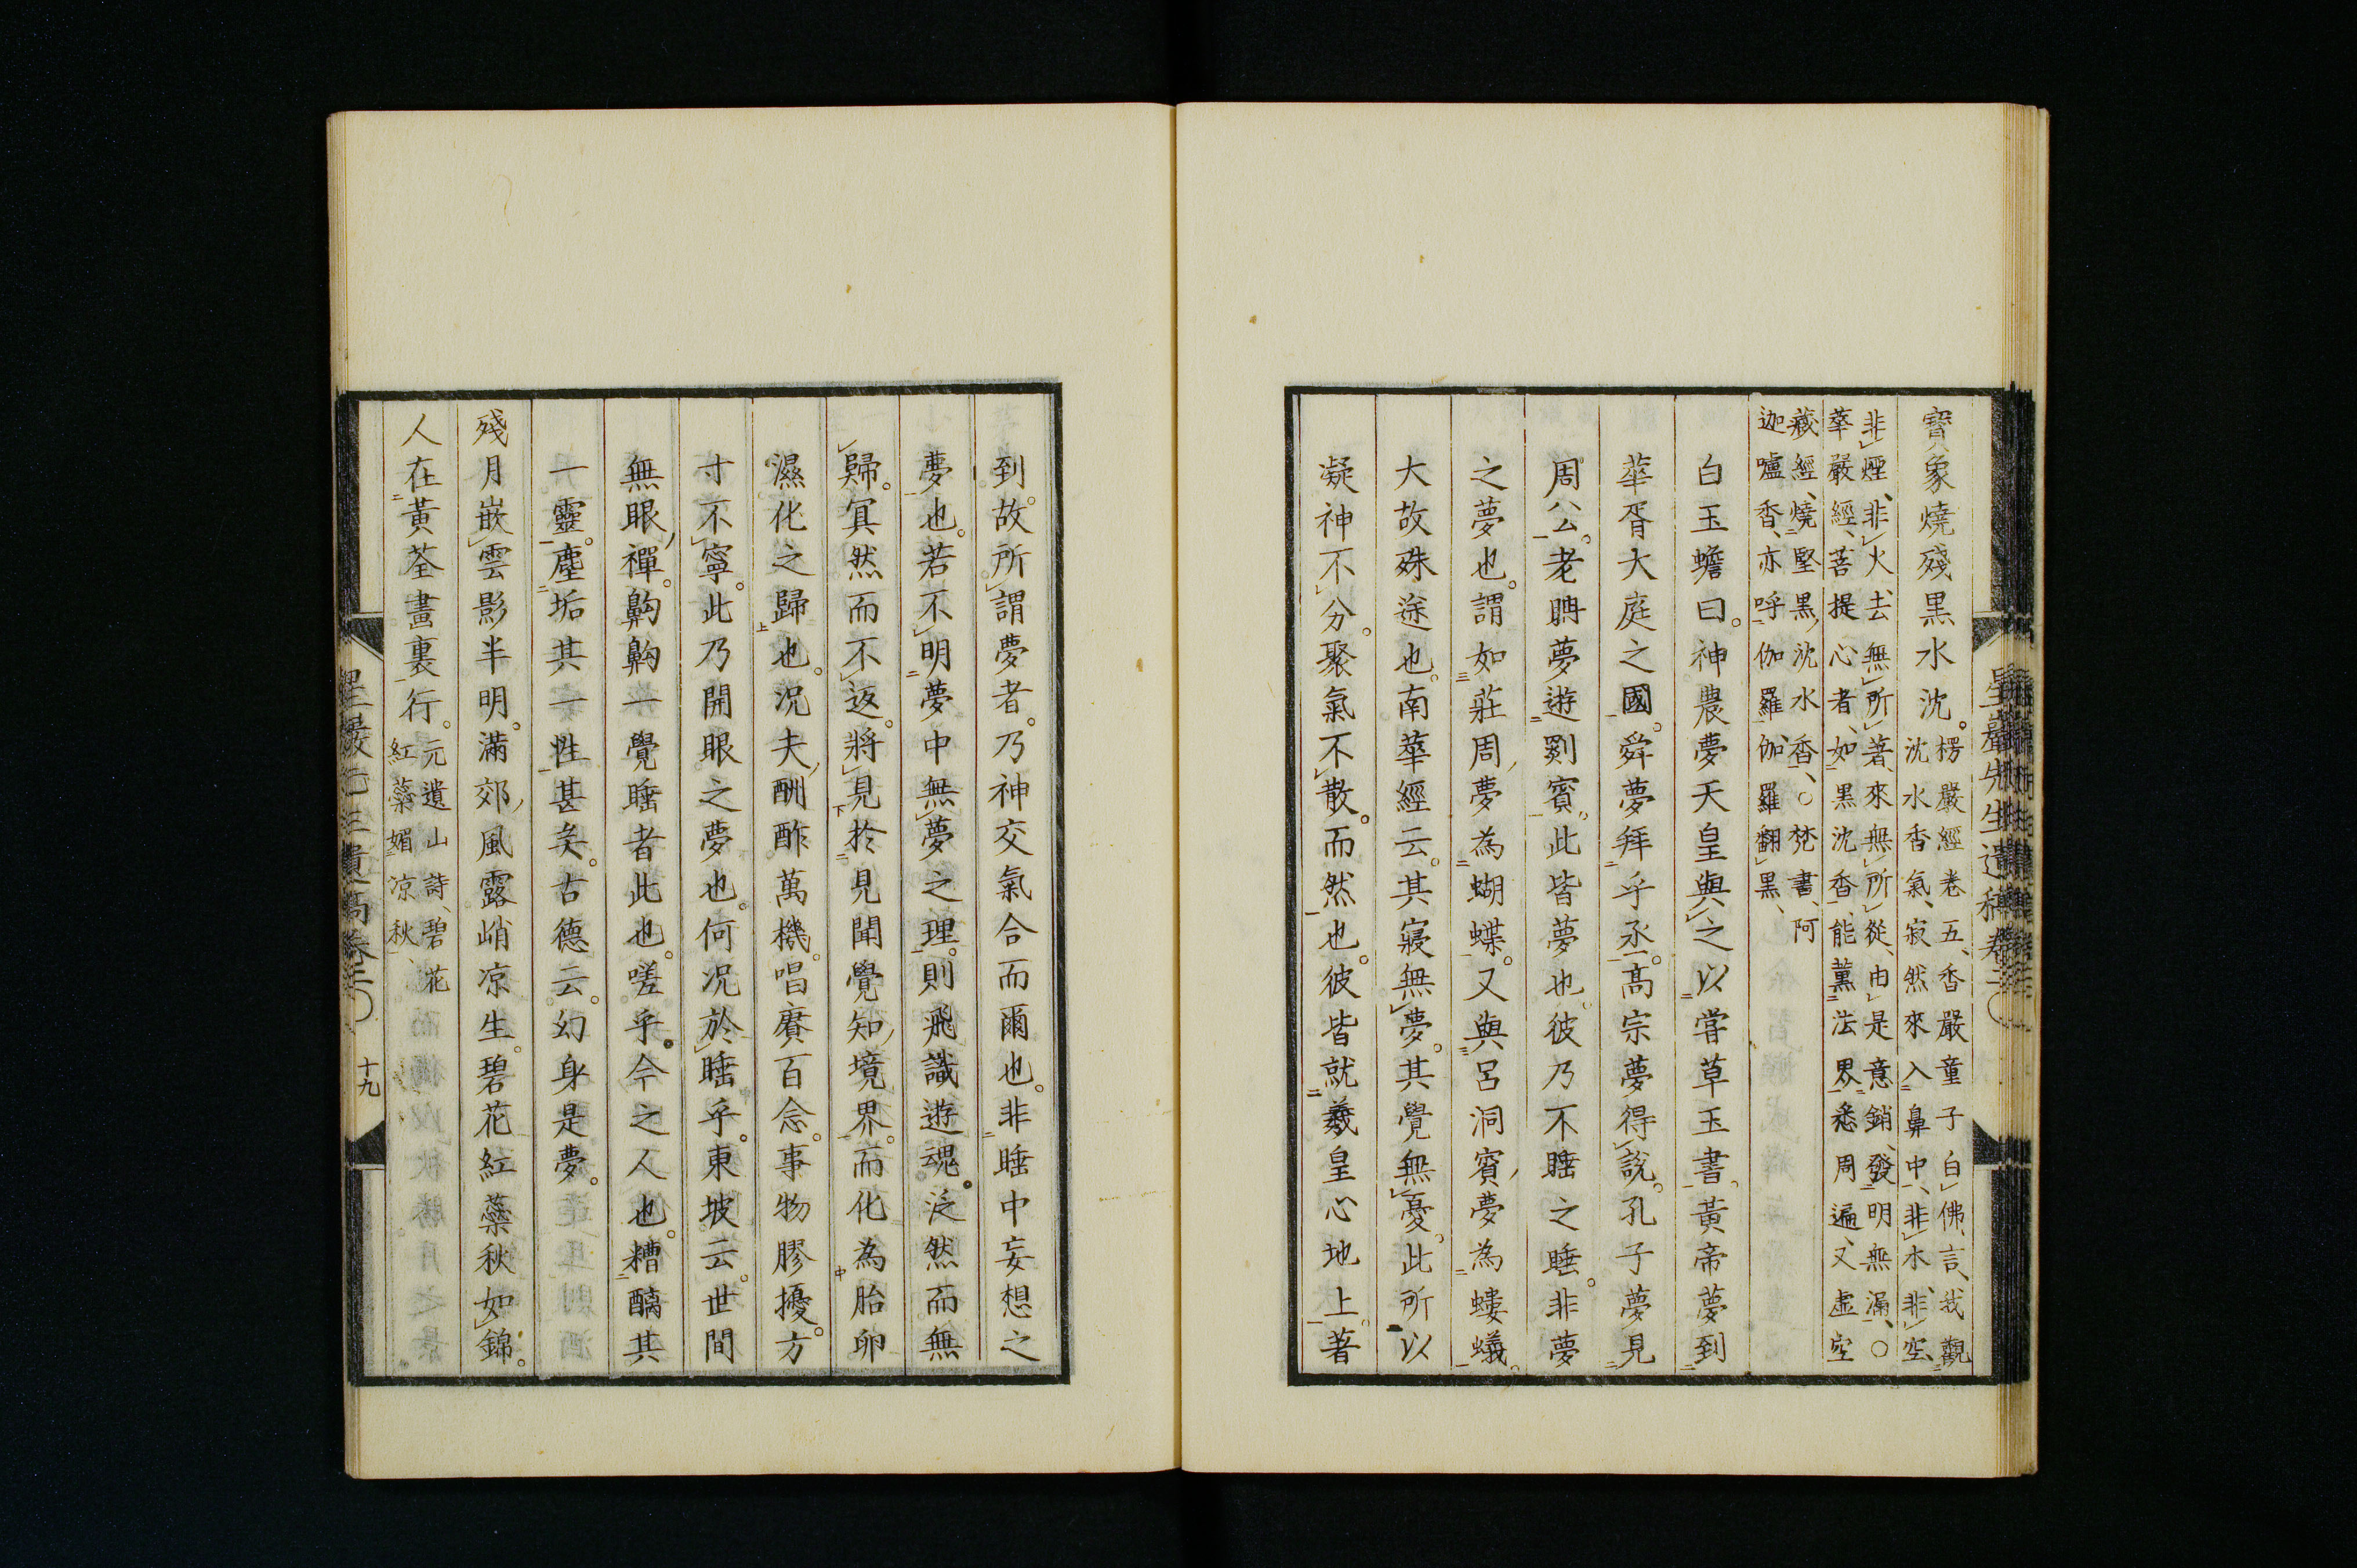 寶象燒殘黑水沈。
楞嚴經卷五、香嚴童子白佛言、我觀
沈水香氣、寂然來入鼻中、非水、非空、
非煙、非火、去無所著、來無所從、由是意銷、發明無漏、○
華嚴經、菩提心者、如黑沈香、能薰法界、悉周遍、又虛空
藏經、燒堅黑沈水香、○梵書、阿
迦嚧香、亦呼伽羅、伽羅翻黑、
白玉蟾曰。神農夢天皇與之以嘗草玉書。黃帝夢到
華胥大庭之國。舜夢拜乎丞。高宗夢得說。孔子夢見
周公。老聃夢遊罽賓。此皆夢也。彼乃不睡之睡。非夢
之夢也。謂如莊周夢為蝴蝶。又與呂洞賓夢為螻蟻。
大故殊途也。南華經云。其寢無夢。其覺無憂。此所以
凝神不分。聚氣不散。而然也。彼皆就羲皇心地上著
星巖先生遺稿
到。故所謂夢者。乃神交氣合而爾也。非睡中妄想之
夢也。若不明夢中無夢之理。則飛識遊魂。泛然而無
歸。冥然而不返。將見於見聞覺知境界。而化為胎卵
濕化之歸也。況夫酬酢萬機。唱賡百念。事物膠擾。方
寸不寧。此乃開眼之夢也。何況於睡乎。東坡云。世間
無眼禪。齁齁一覺睡者此也。嗟乎。今之人也。糟醨其
一靈。塵垢其一性甚矣。古德云。幻身是夢。
殘月嵌雲影半明。滿郊風露峭凉生。碧花紅蘂秋如錦。
人在黃荃畵裏行。
元遺山詩、碧花
紅蘂媚凉秋、
十九